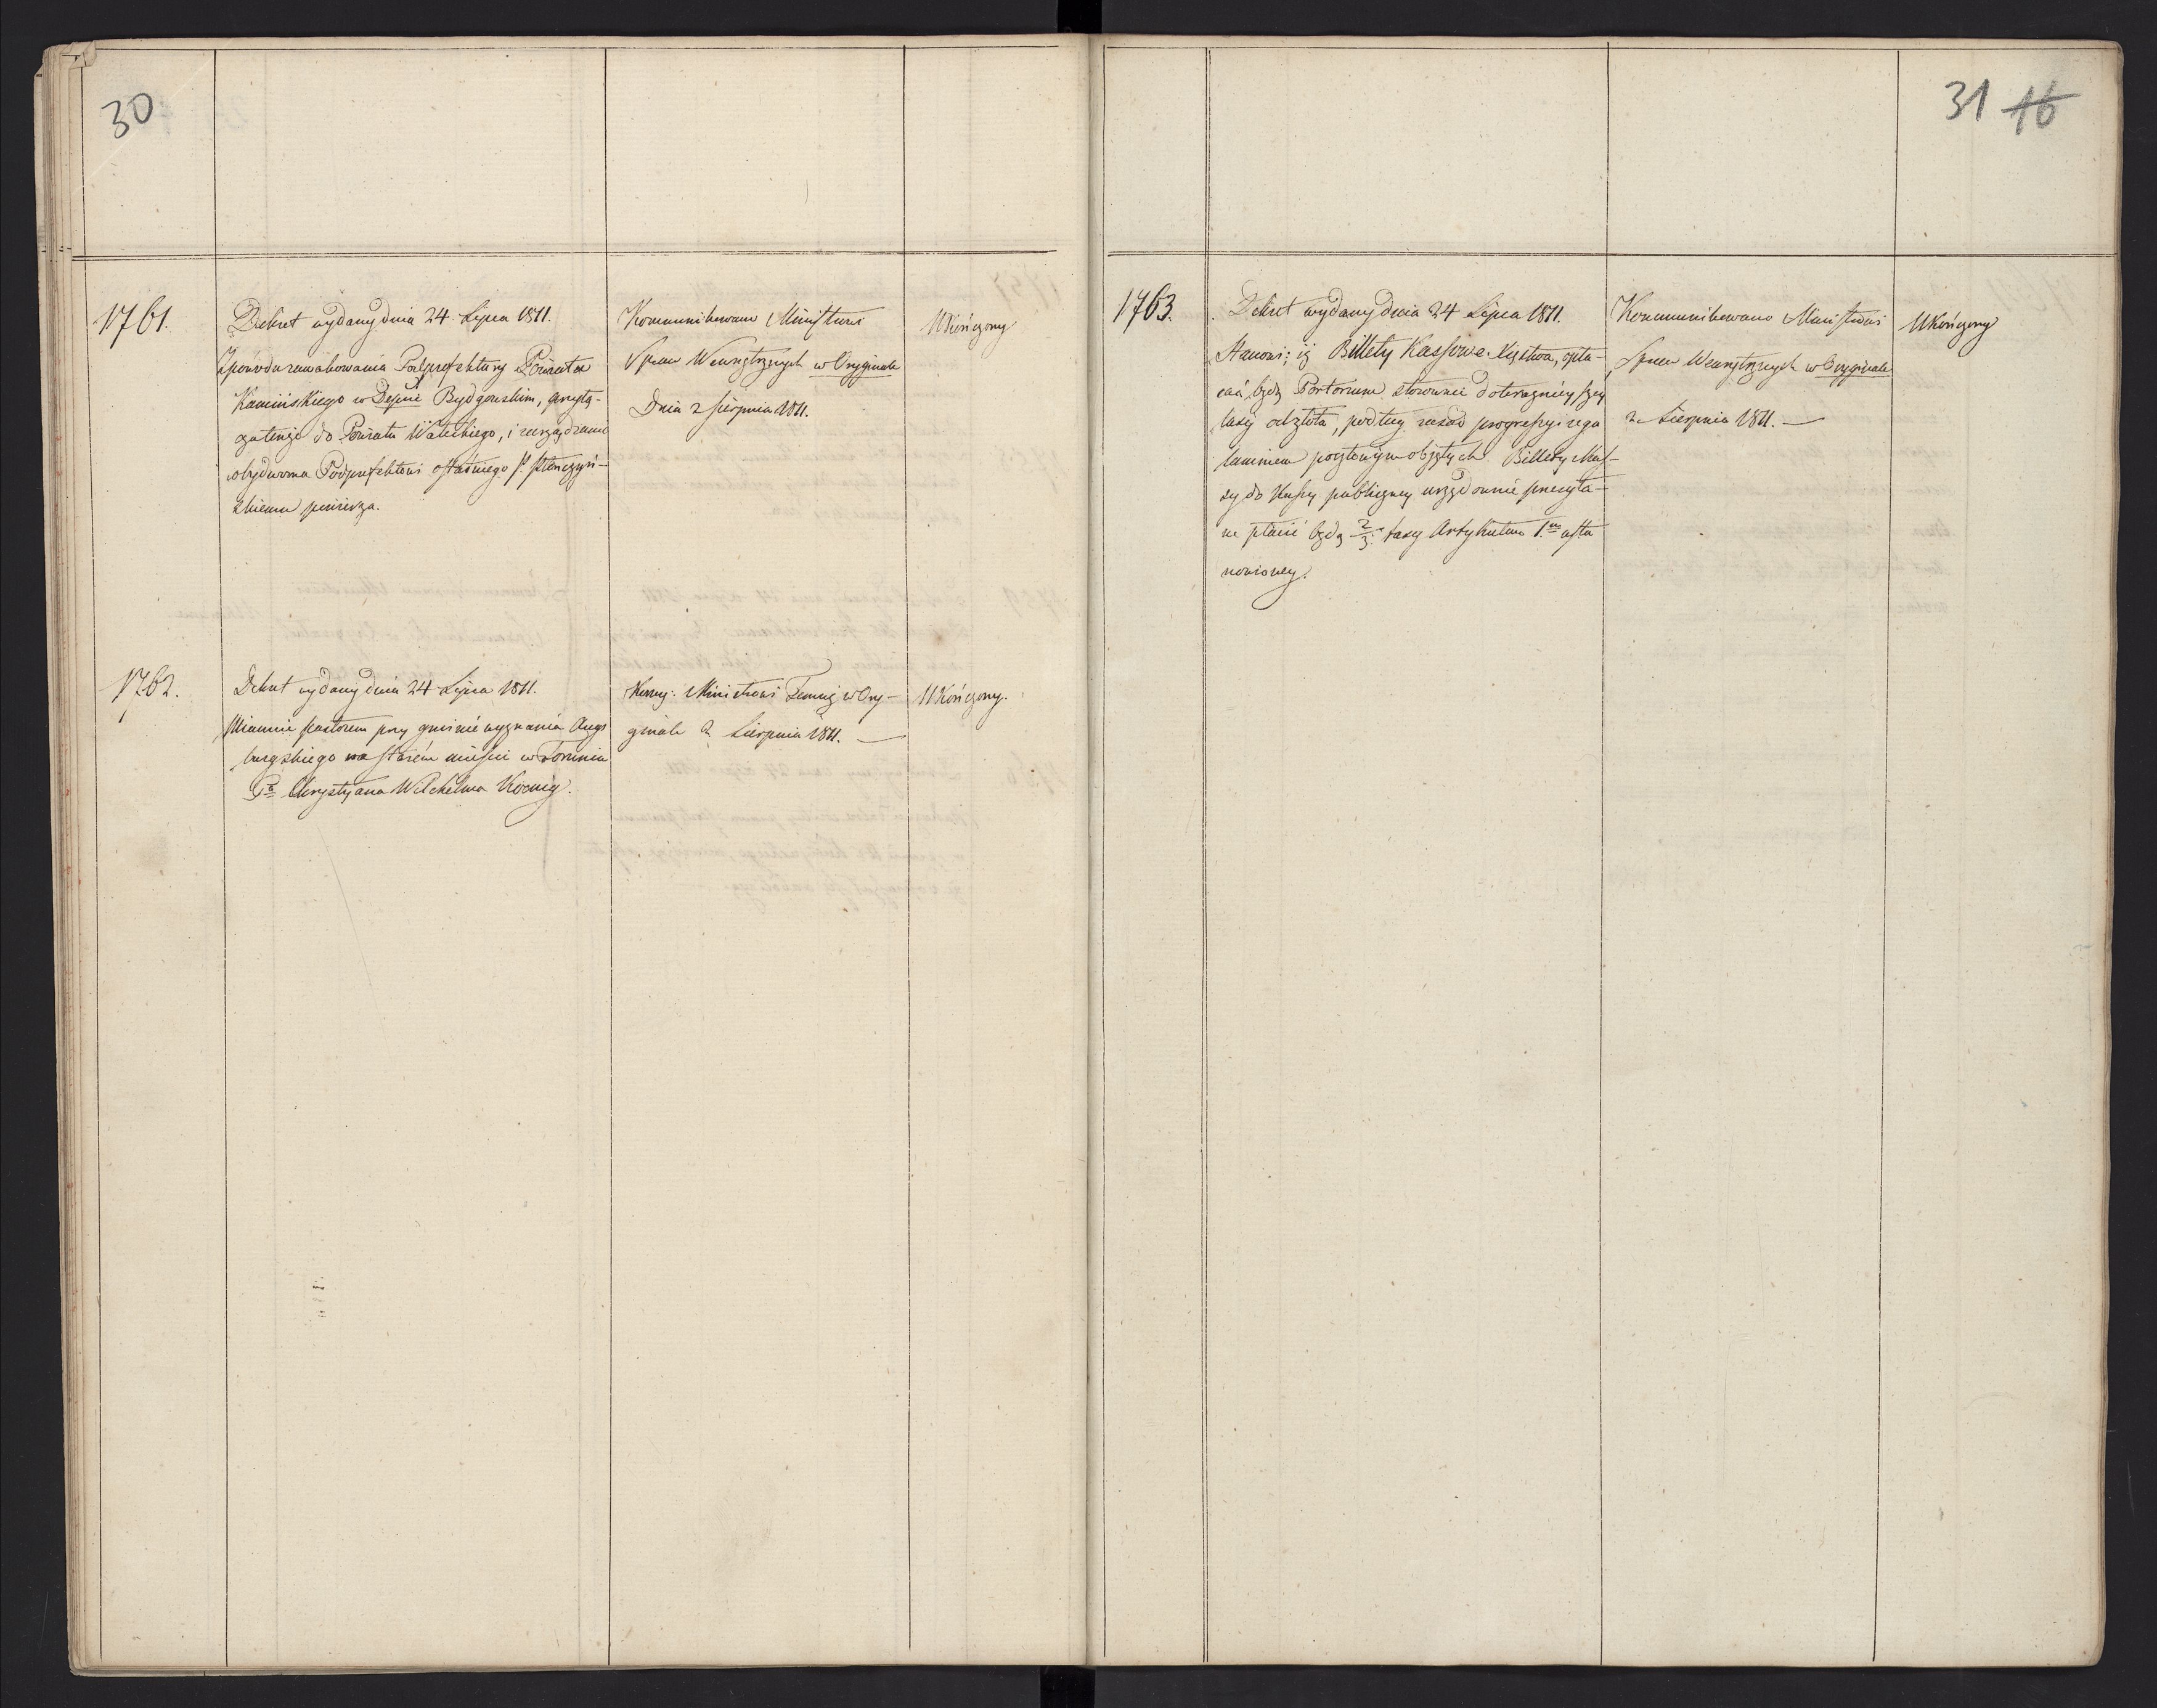 30
1761.
Dekret wydany dnia 24 Lipca 1811.
Z powodu zawakowania Podprefektury Powiatu
Kamińskiego w Depcie Bydgoskim, przyłą-
cza tenże do Powiatu Wałeckiego, i zarządzanie
obydwoma Podprefektowi ostatniego P.
skiemu powierza.
Kommunikowano Ministrowi
Spraw Wewnętrznych w Oryginale
Dnia 2 Sierpnia 1811.
Ukończony
1762.
Dekret wydany dnia 24 Lipca 1811.
Mianuie pastorem przy gminie wyznania Augs
burgskiego na starém mieście w Toruniu
Pa Chrystyana Wilchelma Koenig.
Komm: Ministrowi Temuż w Ory-
ginale 2 Sierpnia 1811. —
Ukończony.
31 16
1763.
Dekret wydany dnia 24 Lipca 1811.
Stanowi; iż Billety Kassowe Xięstwa, opła-
cać będą Portorium stosownie do teraznieyszey
taxy od złota, podług zasad progressyi regu
laminem pocztowym objętych. Billety z Kas-
sy do Kassy publiczney urzędownie przesyła-
ne płacić będą 2/3. taxy Artykułem 1.m usta
nowioney.
Kommunikowano Ministrowi
Spraw Wewnętrznych w Oryginale
2 Sierpnia 1811. —
Ukończony